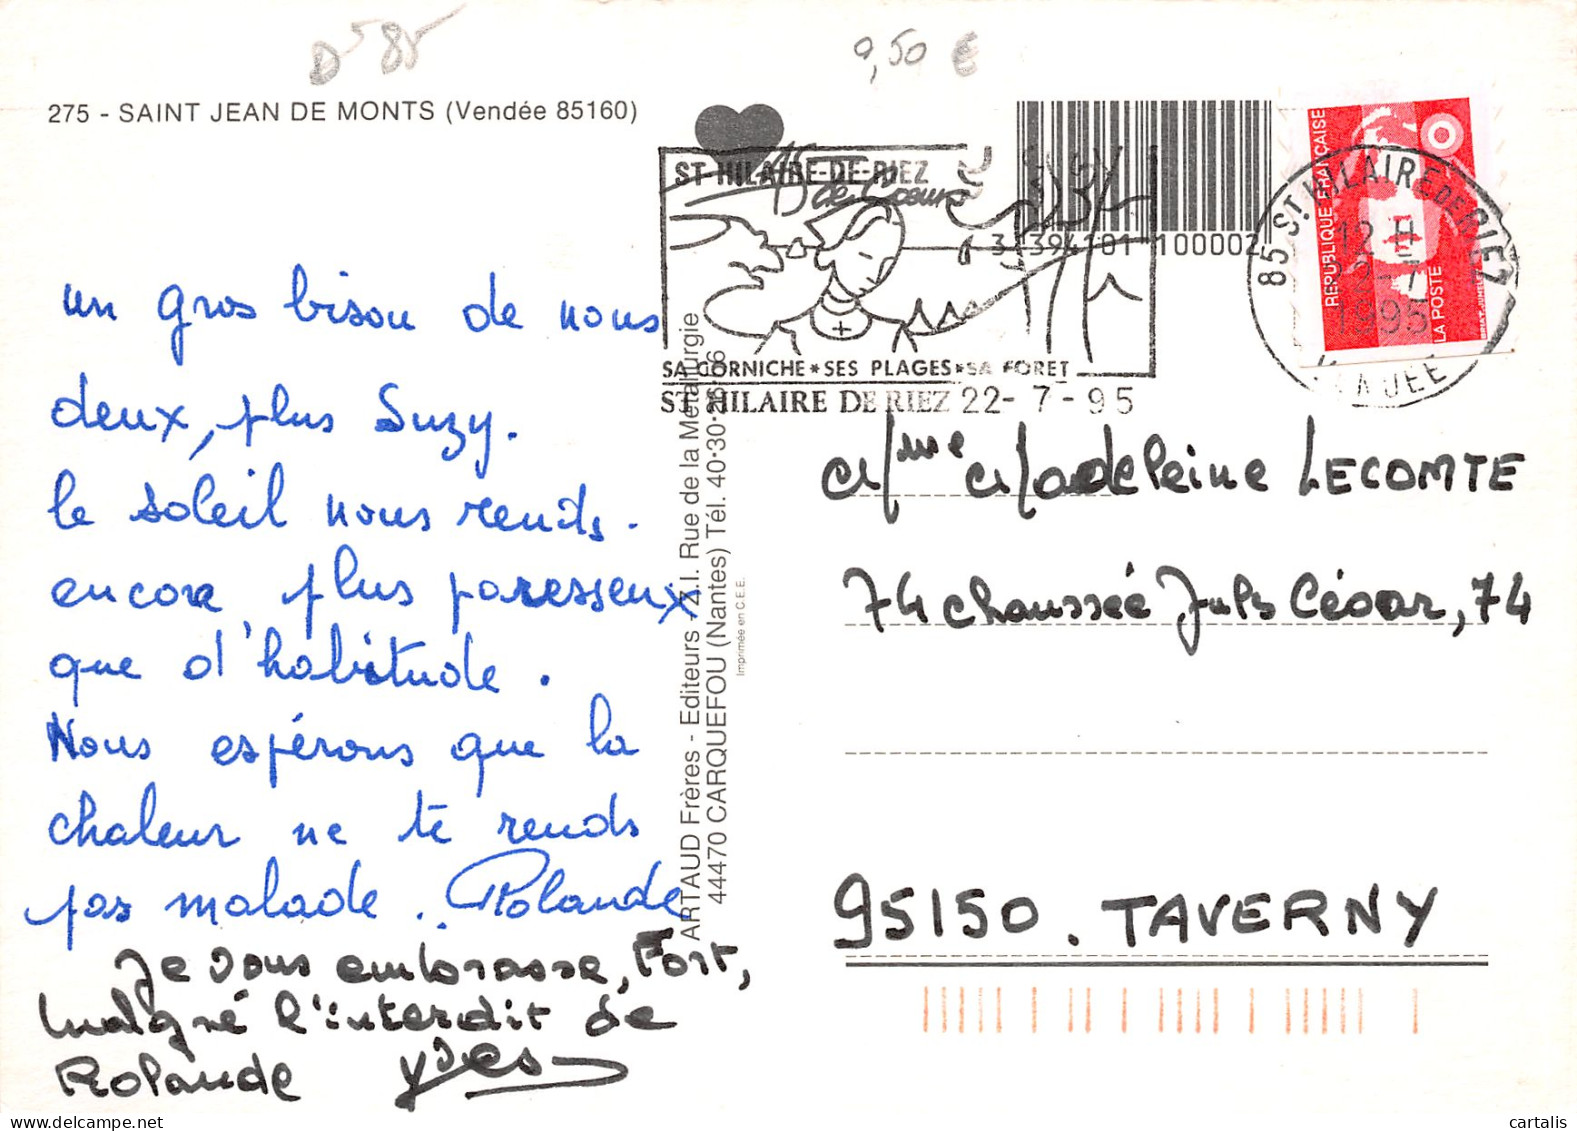 D 85
0,50 €
275 - SAINT JEAN DE MONTS (Vendée 85160)
un gros bisou de nous
deux, plus Suzy.
le soleil nous rends
encore plus paresseux
que d'habitude.
Nous espérons que la
chaleur ne te rends
pas malade. Rolande
Je vous embrasse, Fort,
malgné l'interdit de
Rolande Yves
ARTAUD Frères - Editeurs - Z.I. Rue de la Métallurgie
44470 CARQUEFOU (Nantes) Tél. 40-30-
Imprimée en C.E.E.
ST HILAIRE-DE-RIEZ
de Coeur
SA CORNICHE * SES PLAGES * SA FORET
ST HILAIRE DE RIEZ 22-7-95
100002
REPUBLIQUE FRANÇAISE
LA POSTE
85 ST HILAIRE DE RIEZ
12 H
22-7
1995
VENDEE
Mme Madeleine LECOMTE
74 chaussée Jules César, 74
95150. TAVERNY
cartalis